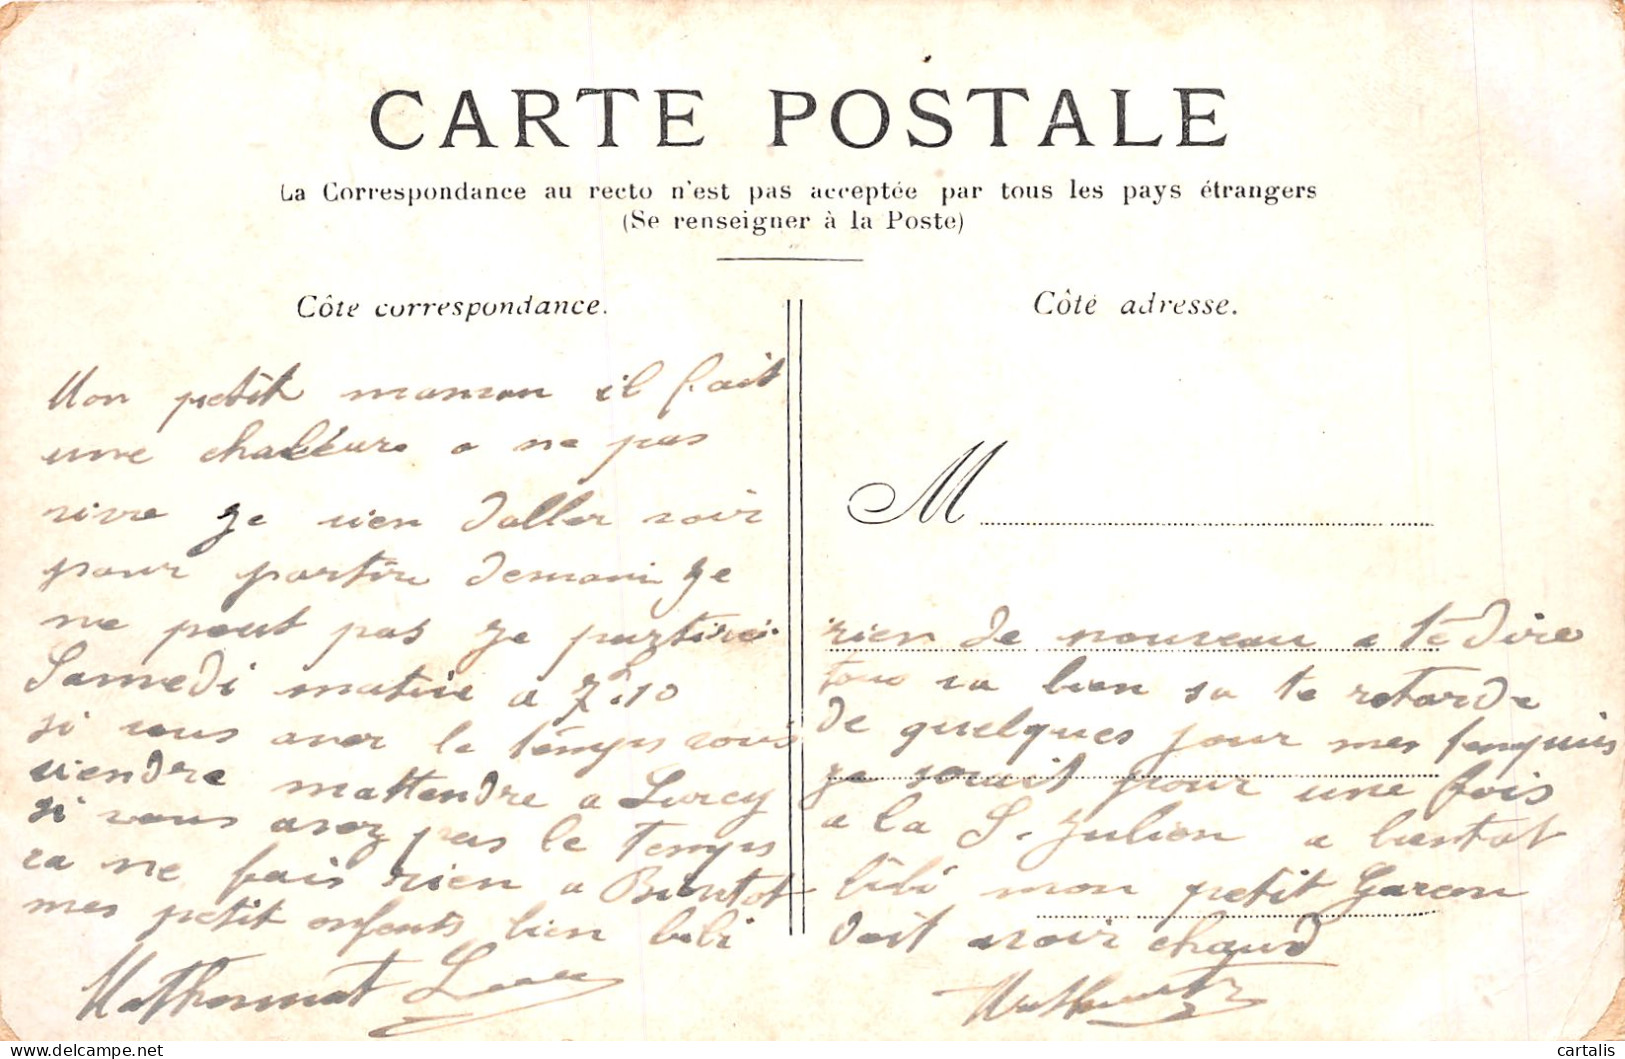 CARTE POSTALE
La Correspondance au recto n'est pas acceptée par tous les pays étrangers
(Se renseigner à la Poste)
Côté correspondance.
Mon petit maman il fait
une chaleurs a ne pas
vivre je vien d'aller voir
pour partir demain je
ne peut pas je partirei
Samedi matin a 7h10
si vous aver le temps vous
viendre mattendre a Lurcy
si vous avez pas le temps
ca ne fais rien a Bientot
mes petit enfents bien bibi
Mathonnat
Côté adresse.
M
rien de nouveau a te dire
tou va bien sa te retarde
de quelques jour mes
je serait pour une fois
a la S. Julien a bientot
bibi mon petit Garcon
doit avoir chaud
cartalis
www.delcampe.net